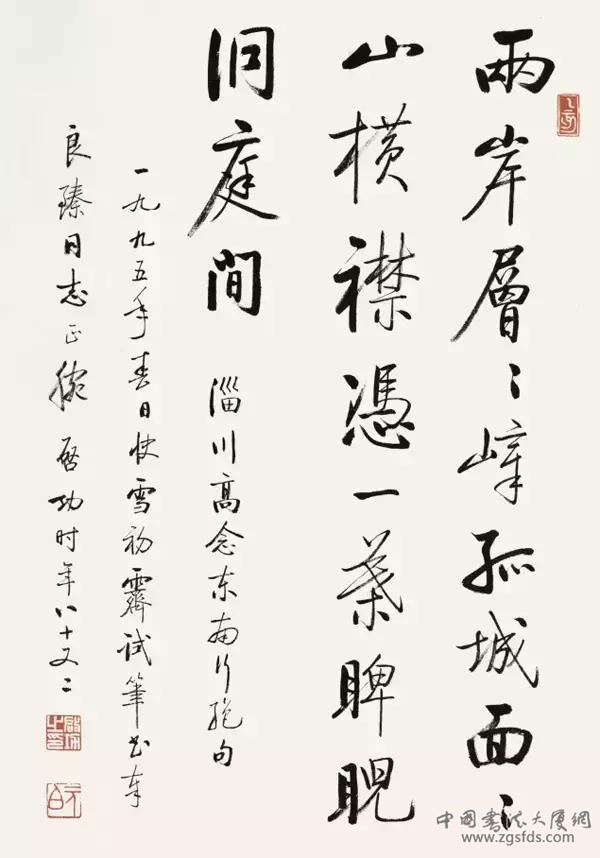 兩岸層〻嶂孤城面〻
山横襟憑一葉睥睨
洞庭間 淄川高念东南行絕句
一九九五年春日快雪初霽試筆书奉
良臻同志正腕 啓功时年八十又二
啟功之印
元白
中國書法大厦網
www.zgsfds.com